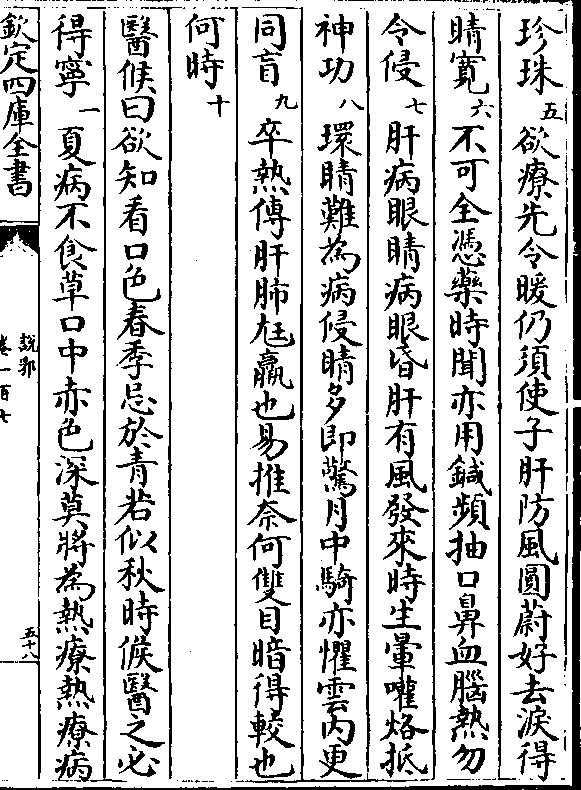 珍珠五欲療先令暖仍須使子肝防風圓蔚好去淚得
睛寬六不可全憑藥時聞亦用鍼頻抽口鼻血腦熱勿
令侵七肝病眼睛病眼昏肝有風發來時生暈嚾烙抵
神功八環睛難為病侵睛多即驚月中騎亦懼雲内更
同盲九卒熱傳肝肺尪羸也易推奈何雙目暗得較也
何時十
醫候曰欲知看口色春季忌於青若似秋時候醫之必
得寧一夏病不食草口中赤色深莫將為熱療熱療病
欽定四庫全書
説郛
卷一百七
五十八